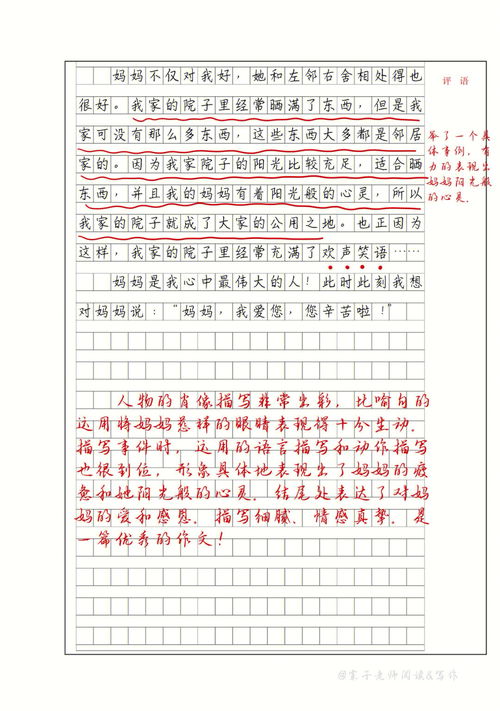 妈妈不仅对我好，她和左邻右舍相处得也
很好。我家的院子里经常晒满了东西，但是我
家可没有那么多东西，这些东西大多都是邻居
家的。因为我家院子的阳光比较充足，适合晒
东西，并且我的妈妈有着阳光般的心灵，所以
我家的院子就成了大家的公用之地。也正因为
这样，我家的院子里经常充满了欢声笑语……
妈妈是我心中最伟大的人！此时此刻我想
对妈妈说：“妈妈，我爱您，您辛苦啦！”
评语
举了一个具
体事例，有
力的表现出
妈妈阳光般
的心灵.
人物的肖像描写非常出彩，比喻句的
运用将妈妈慈祥的眼睛表现得十分生动.
描写事件时，运用的语言描写和动作描写
也很到位，形象具体地表现出了妈妈的疲
惫和她阳光般的心灵. 结尾处表达了对妈
妈的爱和感恩. 描写细腻、情感真挚. 是
一篇优秀的作文！
老师阅读&写作